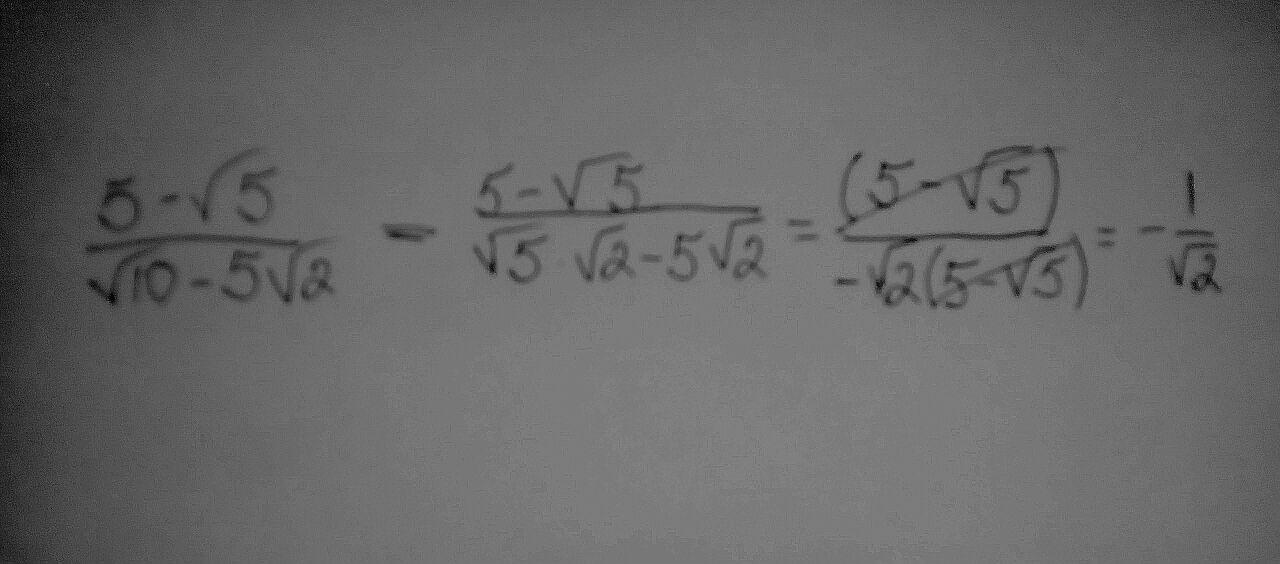 (5-√5)/(√10-5√2) - (5-√5)/(√5·√2-5√2) = (5-√5)/(-√2(5-√5)) = -1/√2